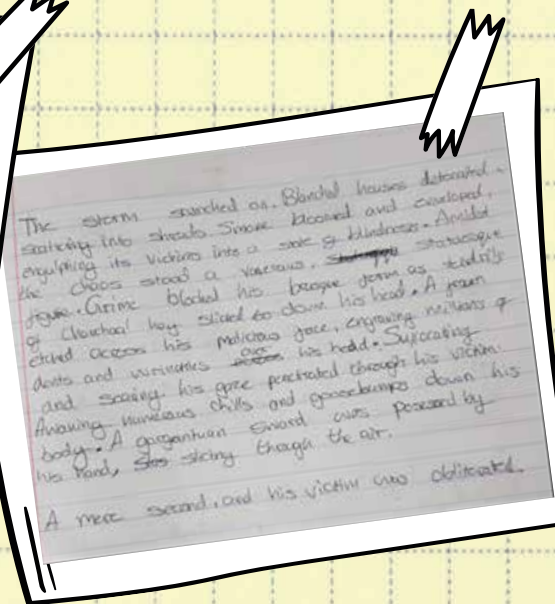 The storm marched on. Blanched houses detonated.
seatering into shreds. Smoke bloomed and enveloped,
engulfing its victims into a state of blindness. Amidst
the chaos stood a statuesque
figure. Grime blocked his form as tendrils
of Charchoal hay slided to down his head. A frown
etched across his malicious face, engraving millions of
dents and wrinckles over his hedd. Sufocating
and searing his gaze penetrated through his victim.
Awaking numerous chills and goosebumps down his
body. A gargantuan sword was posessed by
his hand, slicing through the air.
A mere second, and his victim was obliterated.